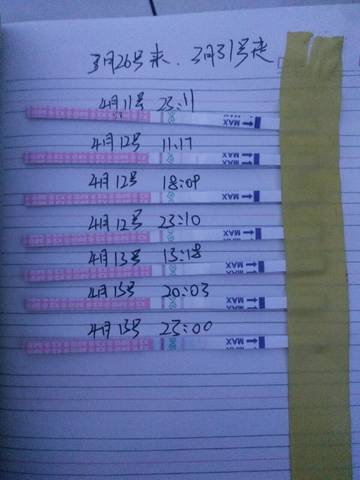 3月26号来、3月31号走
4月11号 23:11
MAX
4月12号 11:17
MAX
4月12号 18:09
MAX
4月12号 23:10
MAX
4月13号 13:18
MAX
4月13号 20:03
MAX
4月13号 23:00
MAX